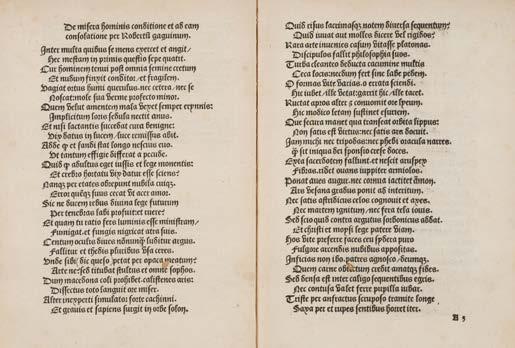 De misera hominis conditione et ad eam
consolatione per Robertū gaguinum.
Inter multa quibus se mens exercet et angit/
Hec mestam in primis questio sepe quatit.
Cur hominem tenui post omnia semine cretum
Et nudum finxit conditor/et fragilem.
Vagiat ortus humi querulus:nec cetera/nec se
Noscat:mole sua verme profecto minor.
Quem velut amentem mala vexet semper erynnis:
Implicitum loris sedula nectit anus.
Et nisi lactantis succedat cura benigne:
Vix datus in lucem/luce remissus abit.
Adde q̄ et fandi stat longo nescius euo,
Ut tantum effigie differat a pecude.
Quid q̄ adultus eget iussis et lege monentis:
Et crebro hortatu vix datur esse sciens?
Nanq̃ per etates obrepunt nubila cuiq̃.
Error queq̃ suus crescat vt ante deos.
Sic ne ducem rebus diuina lege futurum
Per tenebras labi posuit et ruere?
Et quam tu ratis fers luminis esse ministram/
Fumigat:et fungis nigricat atra suis.
Centum oculis duce nonnunq̃ labitur argus.
Fallitur et thedis pluribus vsa ceres.
Unde sibi dic queso/petat per opaca meatum?
Arte ne:sed titubat stultus et omnis sophos.
Dum macedona coli prohibet calistenes aris:
Dissectus toto languit ore miser.
Alter inexperti simulator forte cachinni.
Et grauis et sapiens surgit in orbe solon.
Quid risus lacrimasq̃ notem diuersa sequentum?
Quid iuuat aut molles dicere vel rigidos?
Rara arte inuenies casum vitasse platonas.
Discipulos fallit philosophia suos.
Turba cleantea deducta cacumine multis
Ceca locis:necdum fert sine labe pedem.
O formas vite varias.o errata sciendi.
Hic iubet.ille vetat:garrit hic.ille tacet.
Ructat apros alter et conuomit ore pseum.
Hic modico letam sustinet esuriem.
Que secura manet qua transeat orbita lippus:
Non satis est virtus:nec satis ars docuit.
Jam michi nec tripodas:nec phebi oracula narres.
q̄ sit iniqua dei ponsio crese doces.
Exta sacerdotem fallunt.et nescit aruspex
Fibras.ritet ouans iuppiter armiolos.
Ponat aues augur.nec cornua iactitet āmon.
Ars vesana gradus ponit ad interitum.
Nec satis astridicus celos cognouit et axes.
Nec martem ignitum/nec fera tela iouis.
Sed scio quid contra argutus sorbonicus addat.
Et christi et moysi lege patere viam.
Hos vite preferre faces ceu sydera puro
Fulgore accensis nubibus appositas.
Inficias non ibo.patres agnosco/deumq̃.
Quem carne credit amatq̃ fides.
Sed densa est inter caligo sequentibus egris.
Nec contusa valet ferre pupilla iubar.
Triste per anfractus scruposo tramite longe
Saxa per et rupes sentibus horret iter.
A 3